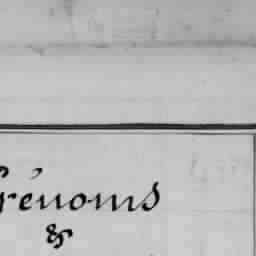 Prénoms
&